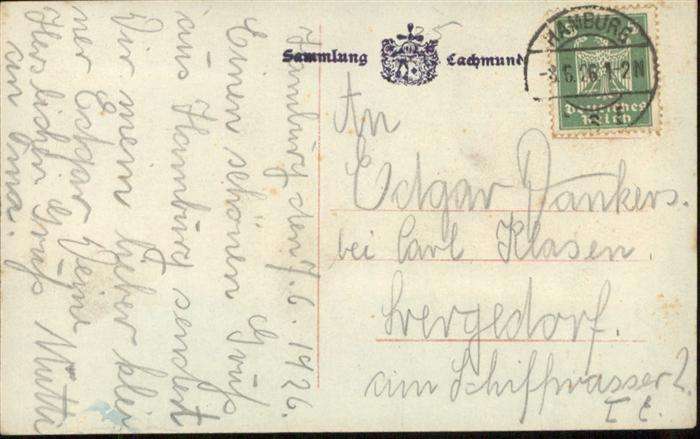 Hamburg den 7.6.1926.
Einen schönen Gruß
aus Hamburg sendet
Dir mein lieber klei
ner Edgar Deine
Mutti
Herzlichen Gruß
an Oma.
Sammlung Lachmund
HAMBURG
-8.6.26.1-2N
Deutsches
Reich
An
Edgar Dankers.
bei Carl Klasen.
Bergedorf.
am Schiffwasser 2.